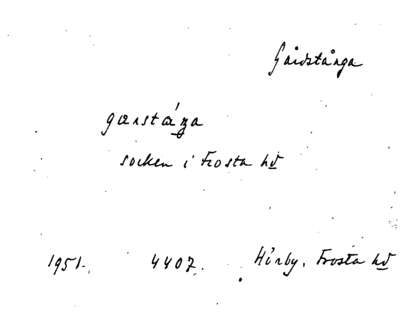 Gårdstånga
garstáŋa
socken i Frosta hd
1951. 4407. Hörby, Frosta hd